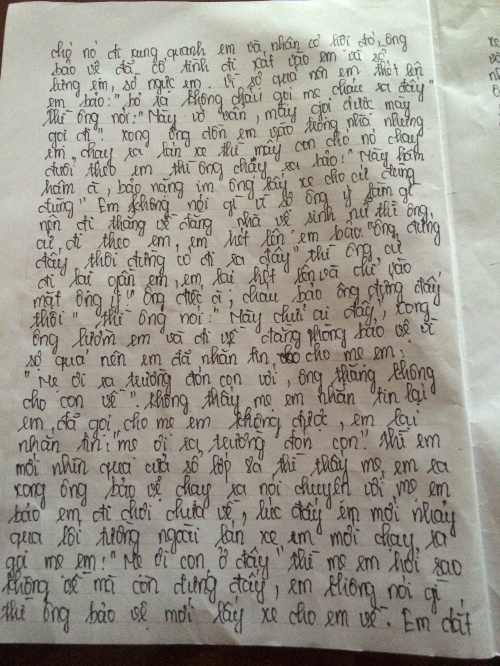 chó nó đi xung quanh em và nhân cơ hội đó, ông
bảo vệ đã cố tình đi xát vào em và sờ
lưng em, sờ ngực em. Vì sợ quá nên em thét lên
em bảo: "bỏ ra không cháu gọi mẹ cháu ra đây"
thì ông nói: "Mày vớ vẩn, mày gọi được mày
gọi đi". Xong ông dồn em vào trong nhà nhưng
em chạy ra lán xe thì mấy con chó nó chạy
đuổi theo em thì ông chạy ra bảo: "Mày hâm
hâm à, bảo nằng im ông lấy xe cho cứ đứng
đứng" Em không nói gì vì sợ ông ý làm gì
nên đi thẳng về đằng nhà vệ sinh nữ thì ông
cứ đi theo em, em hét lên em bảo "ông đứng
đấy thôi đừng có đi ra đây" thì ông cứ
đi lại gần em, em lại hét lên và chỉ vào
mặt ông ý "ông điếc à, cháu bảo ông đứng đấy
thôi" thì ông nói: "Mày chửi ai đấy", xong
ông lườm em và đi về đằng phòng bảo vệ vì
sợ quá nên em đã nhắn tin cho mẹ em:
"Mẹ ơi ra trường đón con với, ông thắng không
cho con về". Không thấy mẹ em nhắn tin lại
em đã gọi cho mẹ em không được, em lại
nhắn tin: "mẹ ơi ra trường đón con" thì em
mới nhìn qua cửa sổ lớp 8a thì thấy mẹ em ra
xong ông bảo vệ chạy ra nói chuyện với mẹ em
bảo em đi chơi chưa về, lúc đấy em mới nhảy
qua lối tường ngoài lán xe em mới chạy ra
gọi mẹ em: "Mẹ ơi con ở đây" thì mẹ em hỏi sao
không về mà còn đứng đấy, em không nói gì
thì ông bảo vệ mới lấy xe cho em về. Em dắt